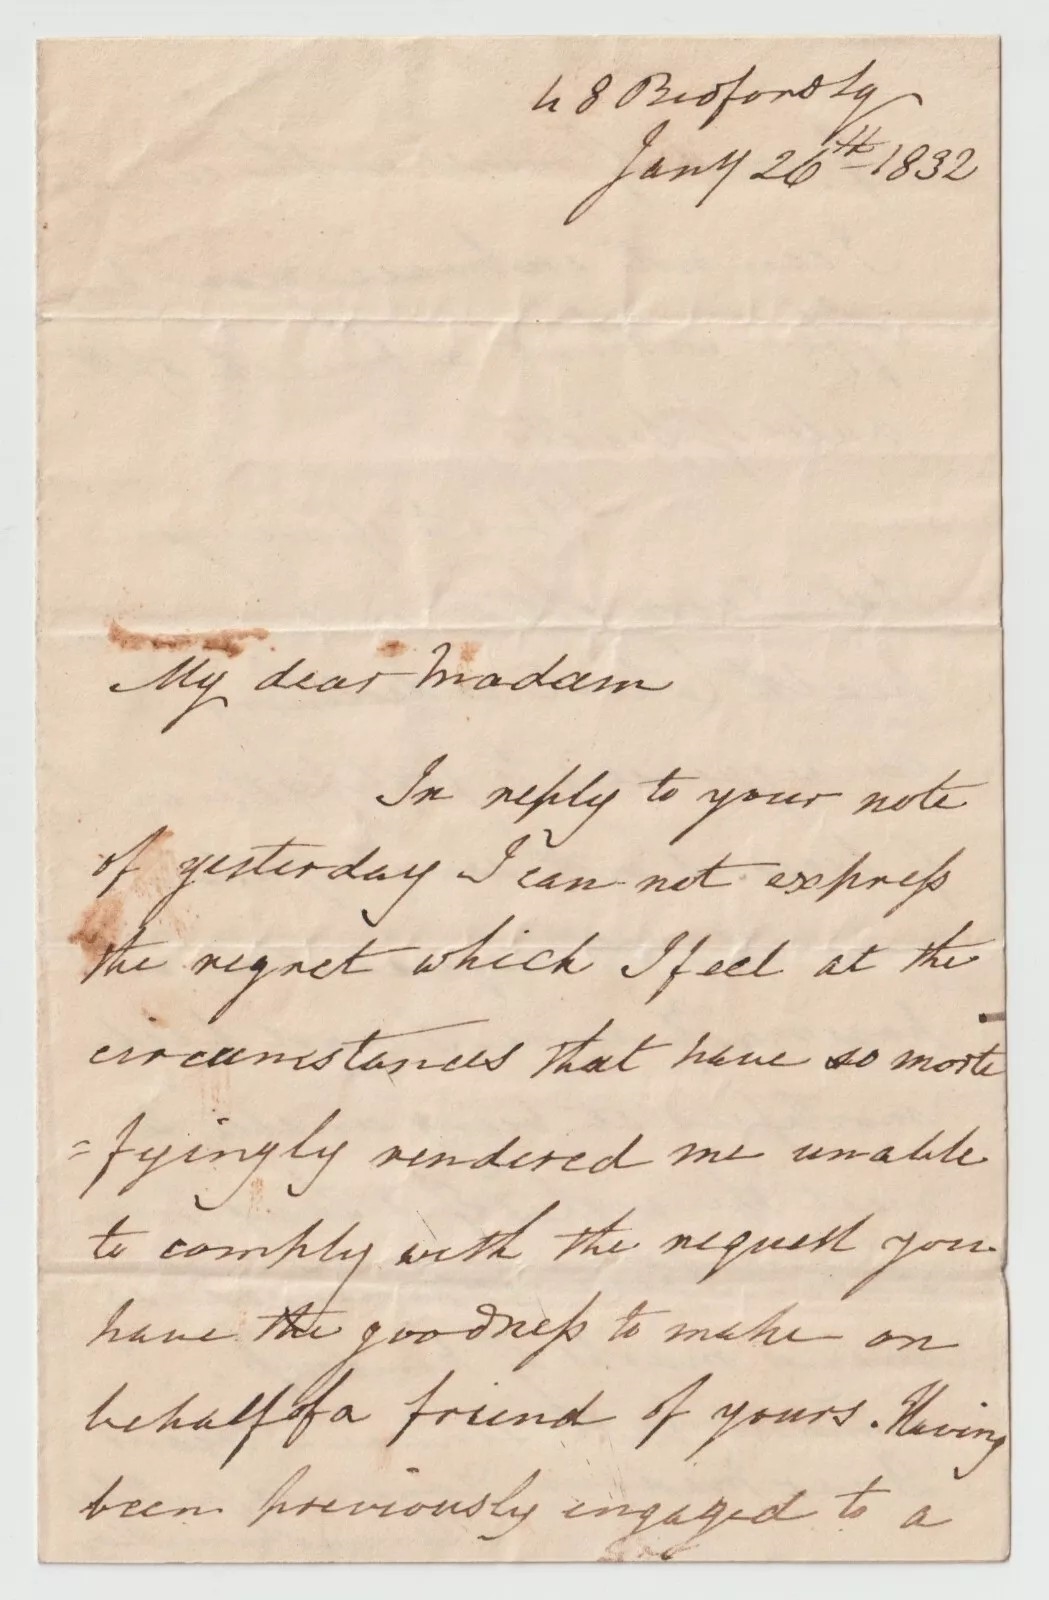 48 Bedford Sq
Jany 26th 1832
My dear Madam
In reply to your note
of yesterday I can not express
the regret which I feel at the
circumstances that have so morti
=fyingly rendered me unable
to comply with the request you
have the goodness to make on
behalf of a friend of yours. Having
been previously engaged to a